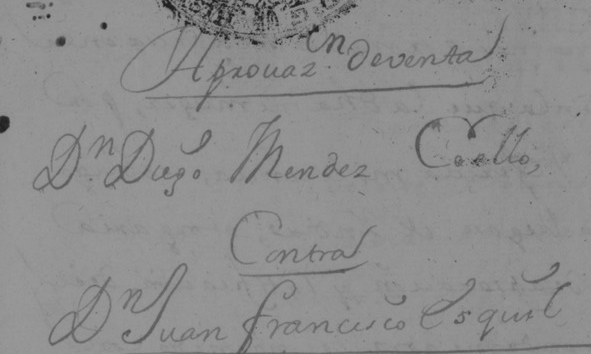 Aprouaz.ⁿ deventa
D.ⁿ Diego Mendez Coello,
Contra
Dⁿ Juan Francisco Esquil